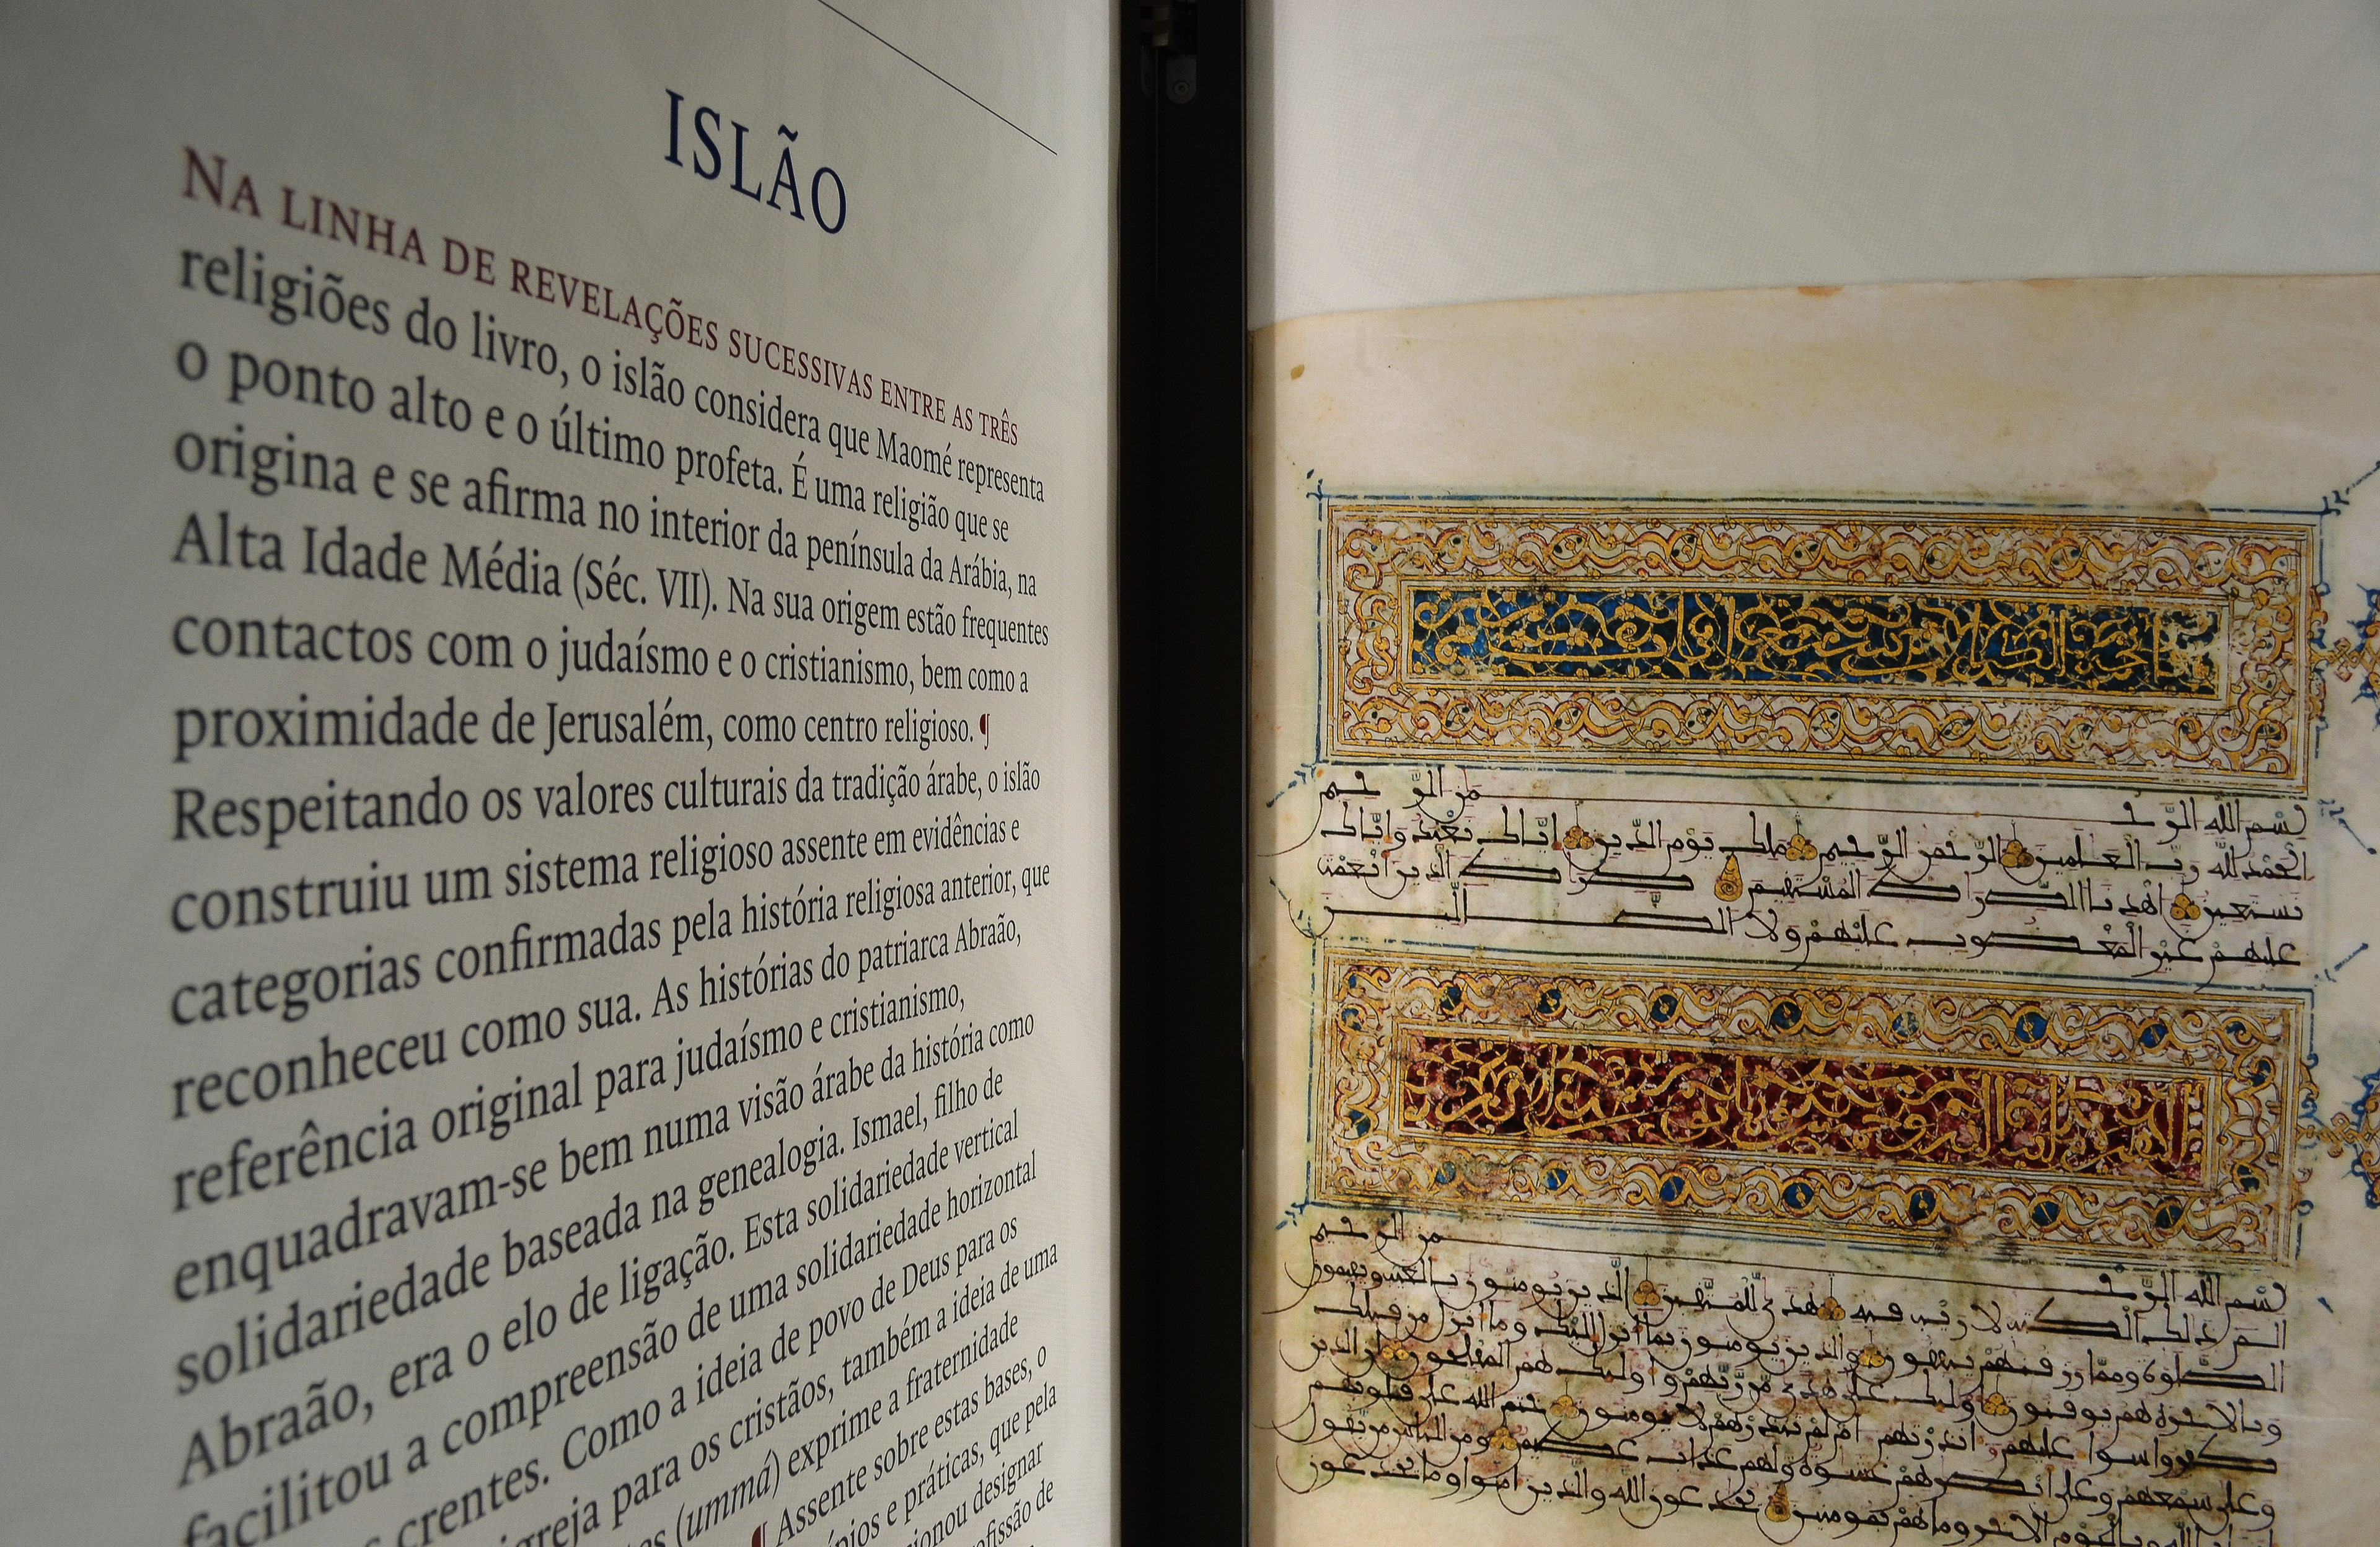 ISLÃO
NA LINHA DE REVELAÇÕES SUCESSIVAS ENTRE AS TRÊS
religiões do livro, o islão considera que Maomé representa
o ponto alto e o último profeta. É uma religião que se
origina e se afirma no interior da península da Arábia, na
Alta Idade Média (Séc. VII). Na sua origem estão frequentes
contactos com o judaísmo e o cristianismo, bem como a
proximidade de Jerusalém, como centro religioso. ¶
Respeitando os valores culturais da tradição árabe, o islão
construiu um sistema religioso assente em evidências e
categorias confirmadas pela história religiosa anterior, que
reconheceu como sua. As histórias do patriarca Abraão,
referência original para judaísmo e cristianismo,
enquadravam-se bem numa visão árabe da história como
solidariedade baseada na genealogia. Ismael, filho de
Abraão, era o elo de ligação. Esta solidariedade vertical
facilitou a compreensão de uma solidariedade horizontal
crentes. Como a ideia de povo de Deus para os
igreja para os cristãos, também a ideia de uma
(ummá) exprime a fraternidade
¶ Assente sobre estas bases, o
e práticas, que pela
designar
de
بسم الله الرحمن الرحيم
الحمد لله رب العلمين الرحمن الرحيم ملك يوم الدين اياك نعبد واياك
نستعين اهدنا الصراط المستقيم صراط الذين انعمت
عليهم غير المغضوب عليهم ولا الضالين
بسم الله الرحمن الرحيم
الم ذلك الكتب لا ريب فيه هدى للمتقين الذين يومنون بالغيب ويقيمون
الصلوة ومما رزقنهم ينفقون والذين يومنون بما انزل اليك وما انزل من قبلك
وبالاخرة هم يوقنون اولئك على هدى من ربهم واولئك هم المفلحون ان الذين
كفروا سوا عليهم انذرتهم ام لم تنذرهم لا يومنون ختم الله على قلوبهم
وعلى سمعهم وعلى ابصرهم غشوة ولهم عذاب عظيم ومن الناس من يقول
امنا بالله وباليوم الاخر وما هم بمومنين يخدعون الله والذين امنوا وما يخدعون